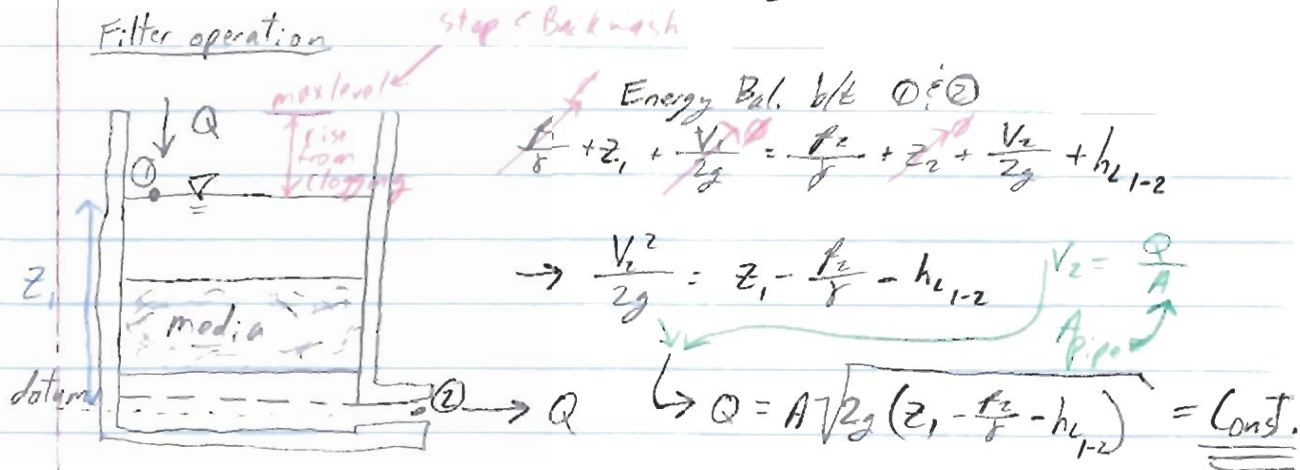 stop & Backwash
Filter operation
max level
rise
from
clogging
Q
①
Z₁
media
datum
② → Q
Energy Bal. b/t ① & ②
P₁/γ + Z₁ + V₁/2g = P₂/γ + Z₂ + V₂/2g + h_L 1-2
∅ ∅
→ V₂²/2g = Z₁ - P₂/γ - h_L 1-2
V₂ = Q/A
A pipe
↳ Q = A√2g(Z₁ - P₂/γ - h_L 1-2) = Const.